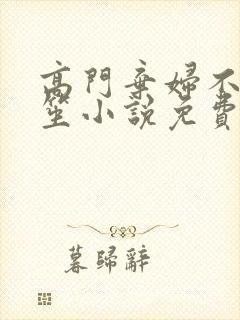 高門棄婦不
笙小說免費
暮歸辭